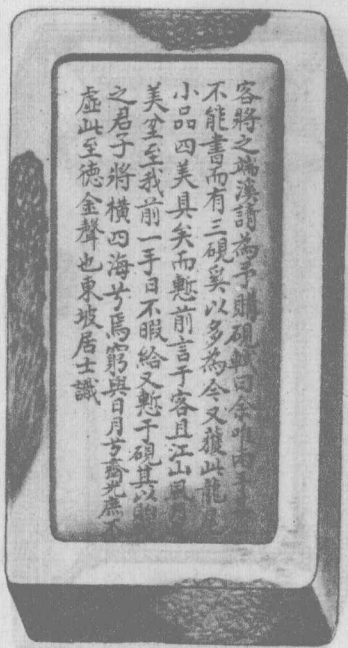 客將之端溪請為予購硯軾曰余唯兩手其一
不能書而有三硯奚以多為今又獲此龍尾
小品四美具矣而慙前言于客且江山風月之
美坌至我前一手日不暇給又慙于硯其以貽後
之君子將橫四海兮焉窮與日月兮齊光庶不
虛此至德金聲也東坡居士識